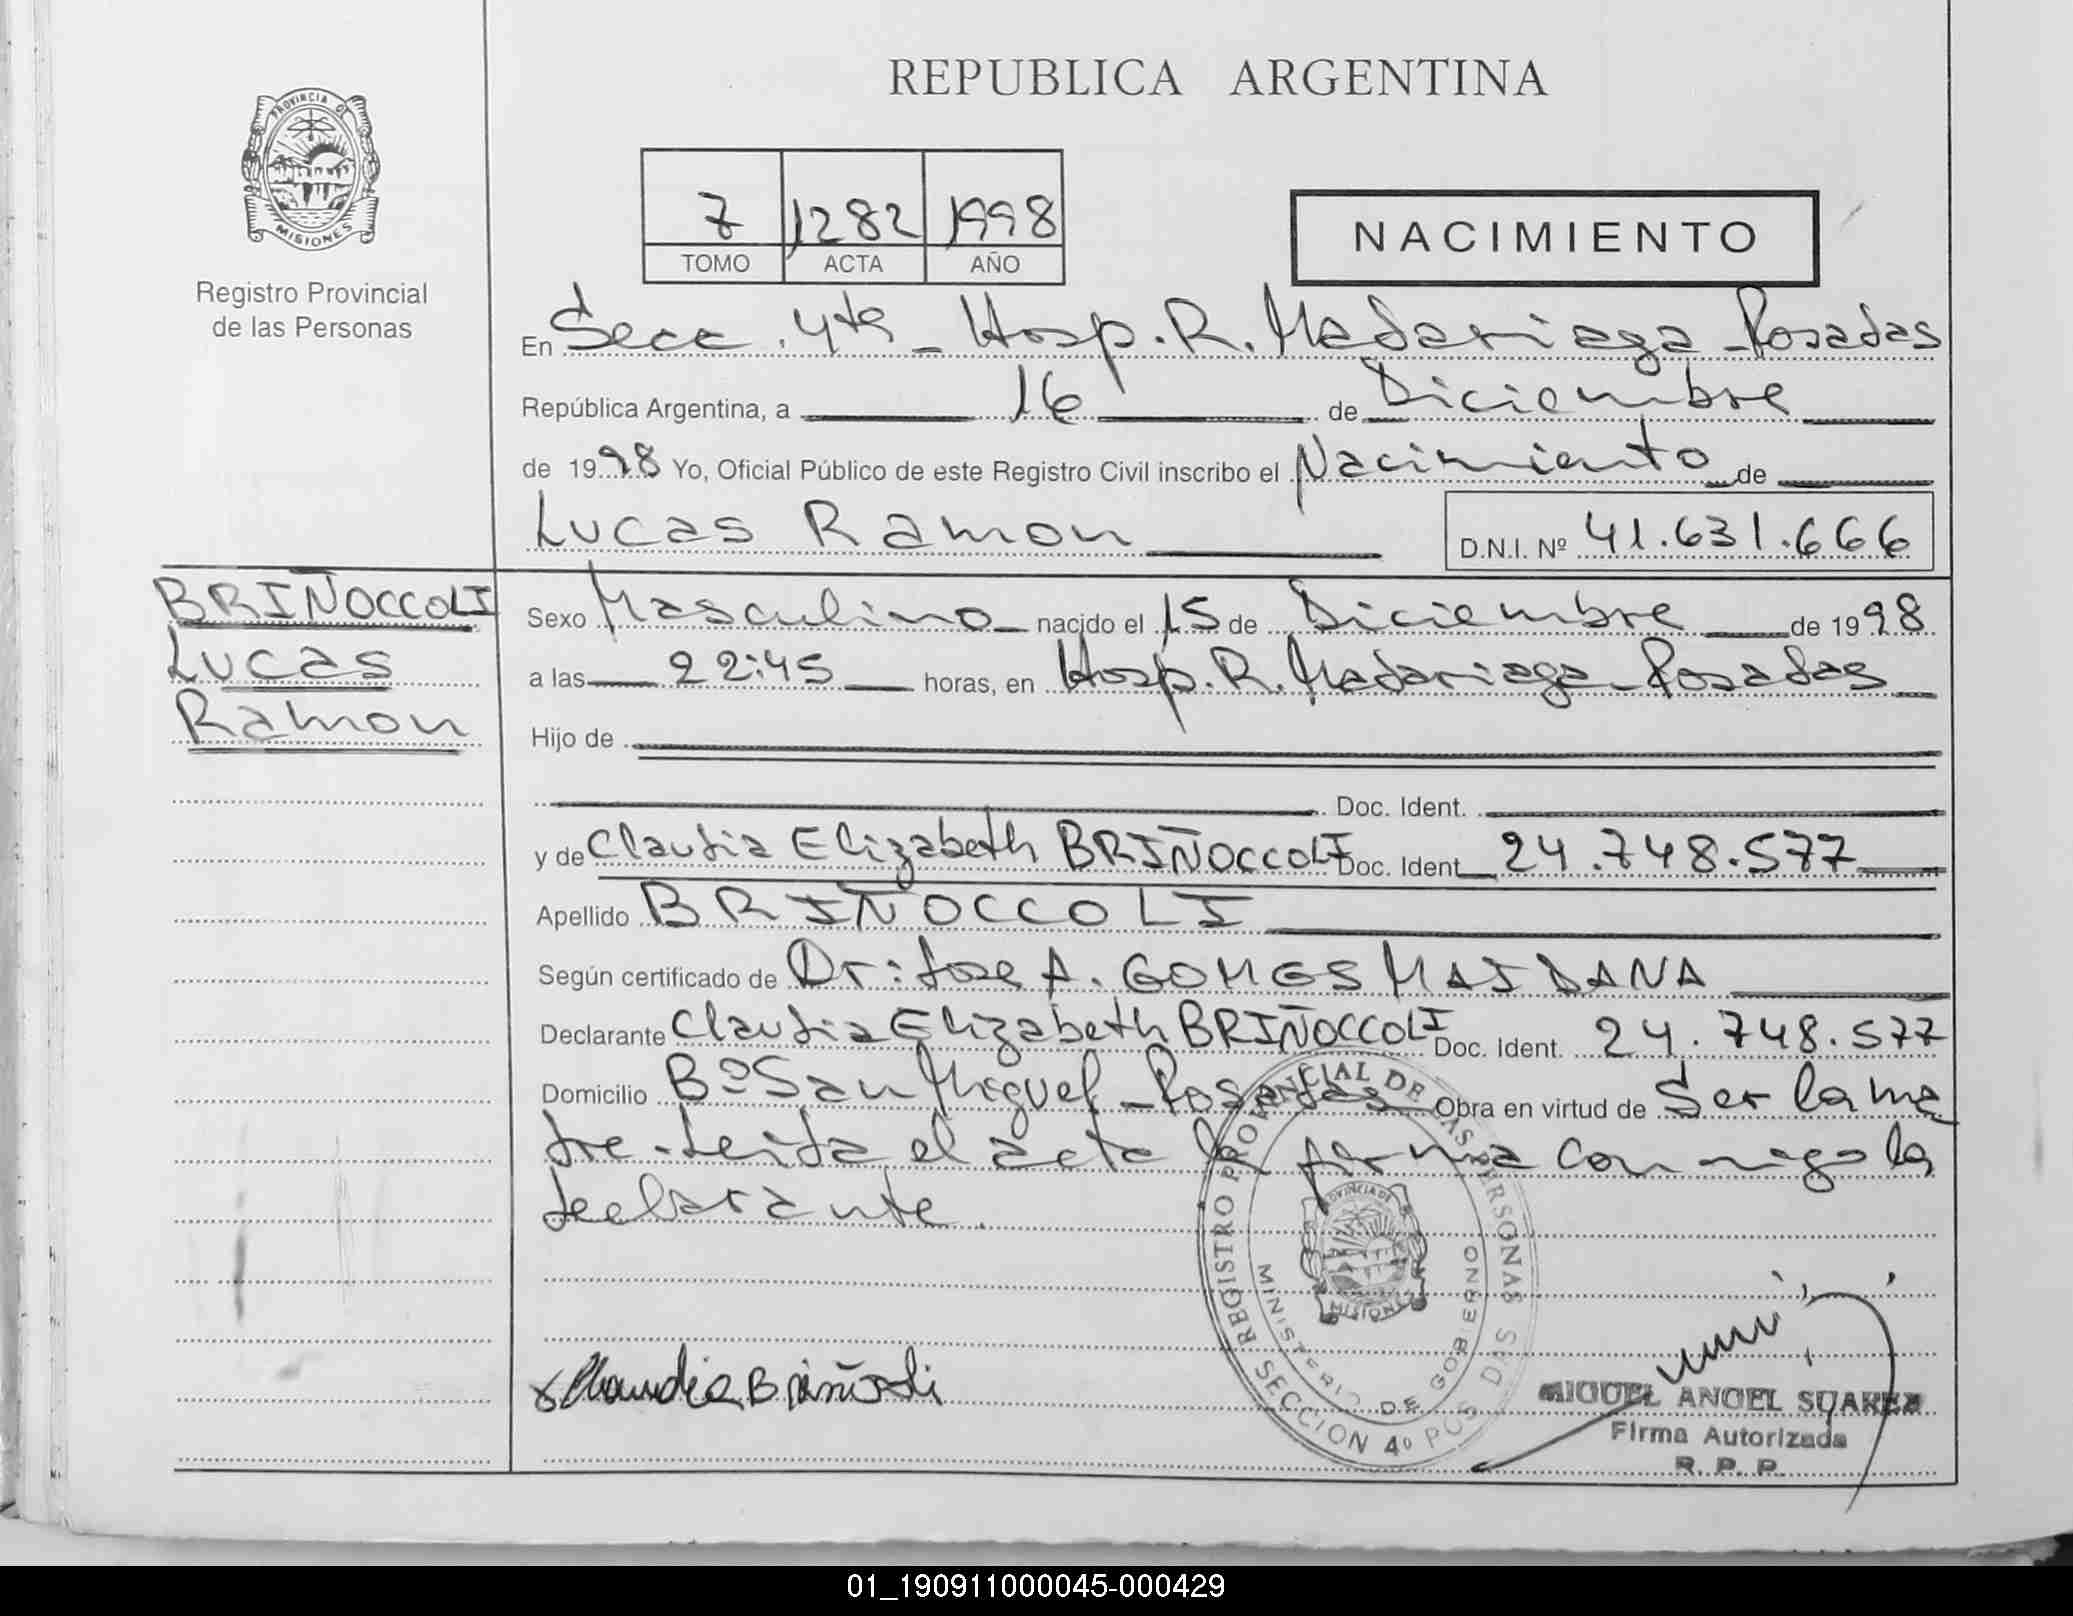 REPUBLICA ARGENTINA
PROVINCIA DE
MISIONES
Registro Provincial
de las Personas
7 1282 1998
TOMO ACTA AÑO
NACIMIENTO
En Secc. 4ta - Hosp. R. Madariaga - Posadas
República Argentina, a 16 de Diciembre
de 1998 Yo, Oficial Público de este Registro Civil inscribo el Nacimiento de
Lucas Ramon D.N.I. Nº 41.631.666
BRIÑOCCOLI
Lucas
Ramon
Sexo Masculino nacido el 15 de Diciembre de 1998
a las 22:45 horas, en Hosp. R. Madariaga - Posadas
Hijo de
Doc. Ident.
y de Claudia Elizabeth BRIÑOCCOLI Doc. Ident 24.748.577
Apellido BRIÑOCCOLI
Según certificado de Dr: Jose A. GOMES MAIDANA
Declarante Claudia Elizabeth BRIÑOCCOLI Doc. Ident. 24.748.577
Domicilio Bº San Miguel - Posadas Obra en virtud de Ser la ma
dre - Leida el acta la firma conmigo la
declarante.
REGISTRO PROVINCIAL DE LAS PERSONAS
MINISTERIO DE GOBIERNO
PROVINCIA DE
MISIONES
SECCION 4º POSADAS
MIGUEL ANGEL SUAREZ
Firma Autorizada
R. P. P.
01_190911000045-000429